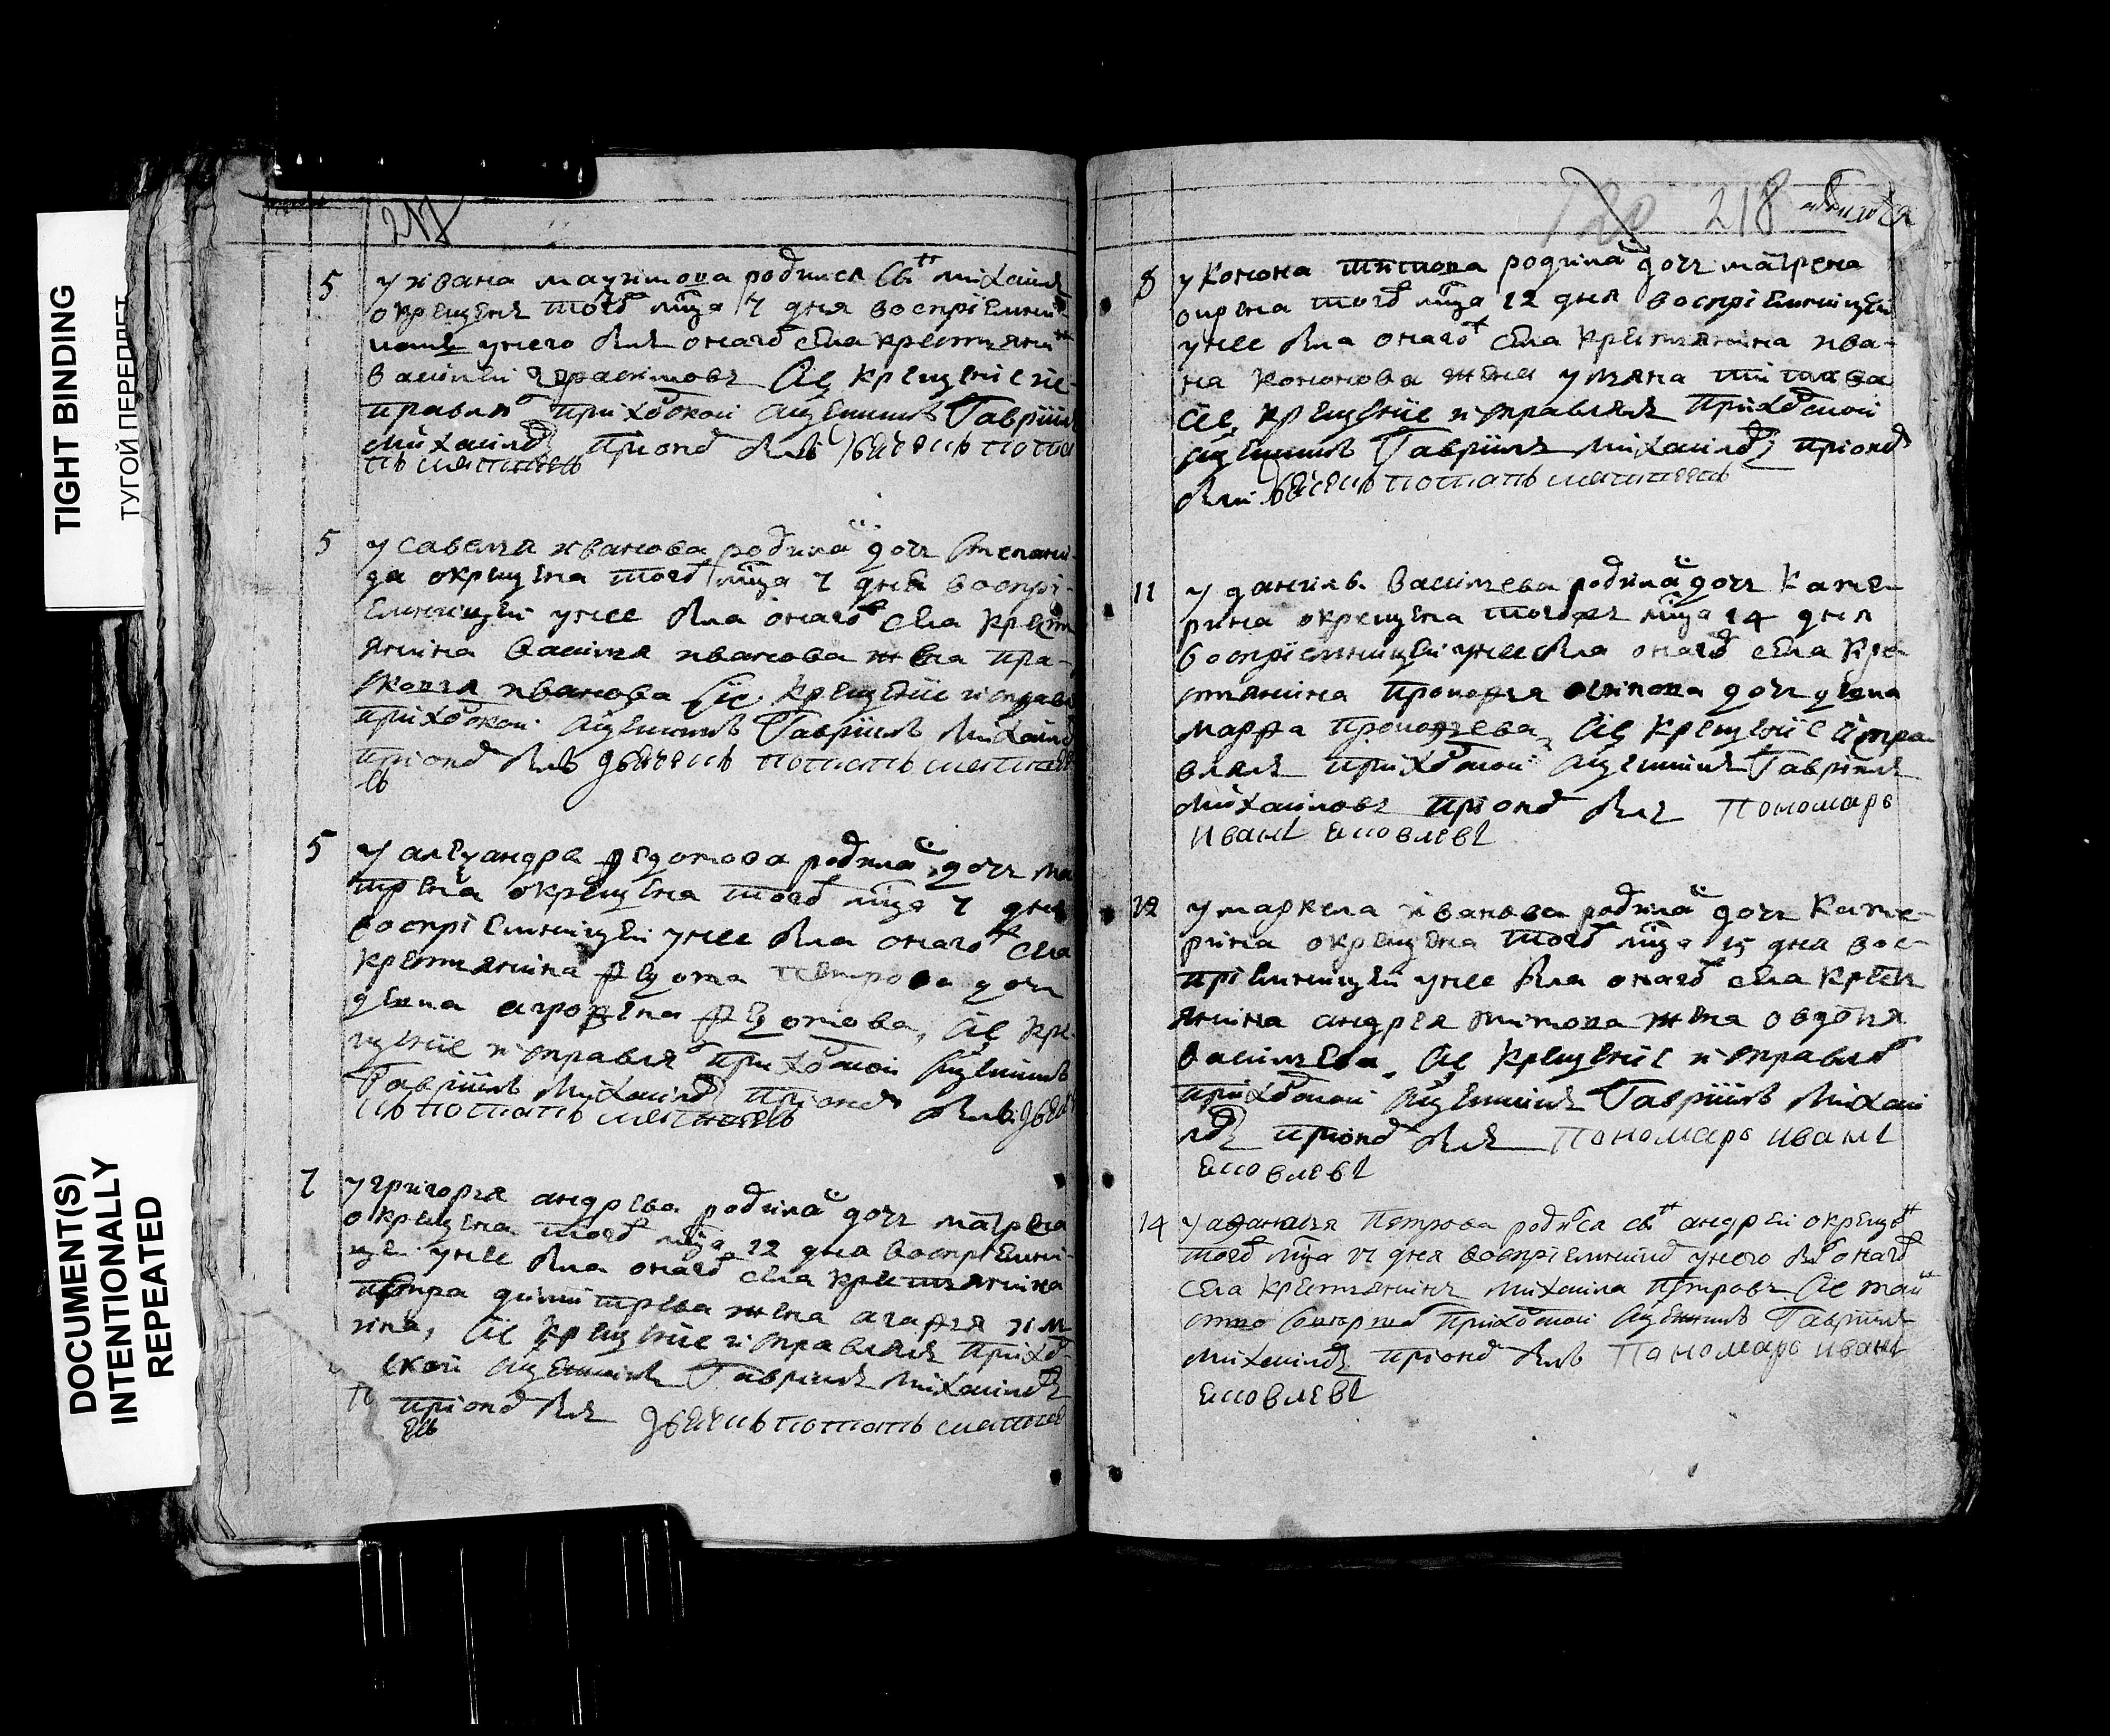 TIGHT BINDING
ТУГОЙ ПЕРЕПЛЕТ
DOCUMENT(S)
INTENTIONALLY
REPEATED
217
5 у ивана маѯимова родился снъ михаилъ
окрещенъ тогож мца 7 дня восприемни
комъ унего былъ оного села крестянинъ
василеи герасимовъ сие крещение ис
правлялъ приходской сщенникъ Гавриилъ
михаиловъ при оном былъ дьячекъ потапъ
матвеевъ
5 у савелья иванова родилась дочь степани
да окрещена тогож мца 7 дня воспри
емницеи унее была оного села крест
янина василья иванова жена пра
сковья иванова сие крещение исправлялъ
приходской сщенникъ Гавриилъ михаиловъ
при оном былъ дьячекъ потапъ матвее
въ
5 у алеѯандра федотова родилась дочь ма
трена окрещена тогож мца 7 дня
восприемницеи унее была оного села
крестянина федота петрова дочь
девка агрофена федотова, сие кре
щение исправлялъ приходской сщенникъ
Гавриилъ михаиловъ при оном былъ дьяче
къ потапъ матвеевъ
7 у григорья андреева родилась дочь матрена
окрещена тогож мца 12 дня восприемни
цеи унее была оного села крестьянина
петра димитрева жена агафья
сие крещение исправлялъ приход
ской сщенникъ Гавриилъ михаиловъ
при оном былъ дьячекъ потапъ матве
евъ
120 218
8 у конона титова родилась дочь матрена
окрещена тогож мца 12 дня восприемницеи
унее была оного села крестьянина ива
на кононова жена ульяна титова
сие крещение исправлялъ приходской
сщенникъ Гавриилъ михаиловъ при оном
былъ дьячекъ потапъ матвеевъ
11 у данилы василева родилась дочь кате
рина окрещена тогож мца 14 дня
восприемницеи унее была оного села кре
стьянина прокофья осипова дочь девка
марфа прокофева, сие крещение испра
влялъ приходской сщенникъ Гавриилъ
михаиловъ при оном былъ пономарь
иванъ яковлевъ
12 у маркела иванова родилась дочь кате
рина окрещена тогож мца 15 дня вос
приемницеи унее была оного села крест
янина андрея титова жена овдотья
василева, сие крещение исправлялъ
приходской сщенникъ Гавриилъ михаи
ловъ при оном былъ пономарь иванъ
яковлевъ
14 у афанасья петрова родился снъ андреи окрещенъ
тогож мца 17 дня восприемникомъ унего былъ оного
села крестьянинъ михаила петровъ сие таи
нство совершалъ приходской сщенникъ Гавриилъ
михаиловъ при оном былъ пономарь иванъ
яковлевъ